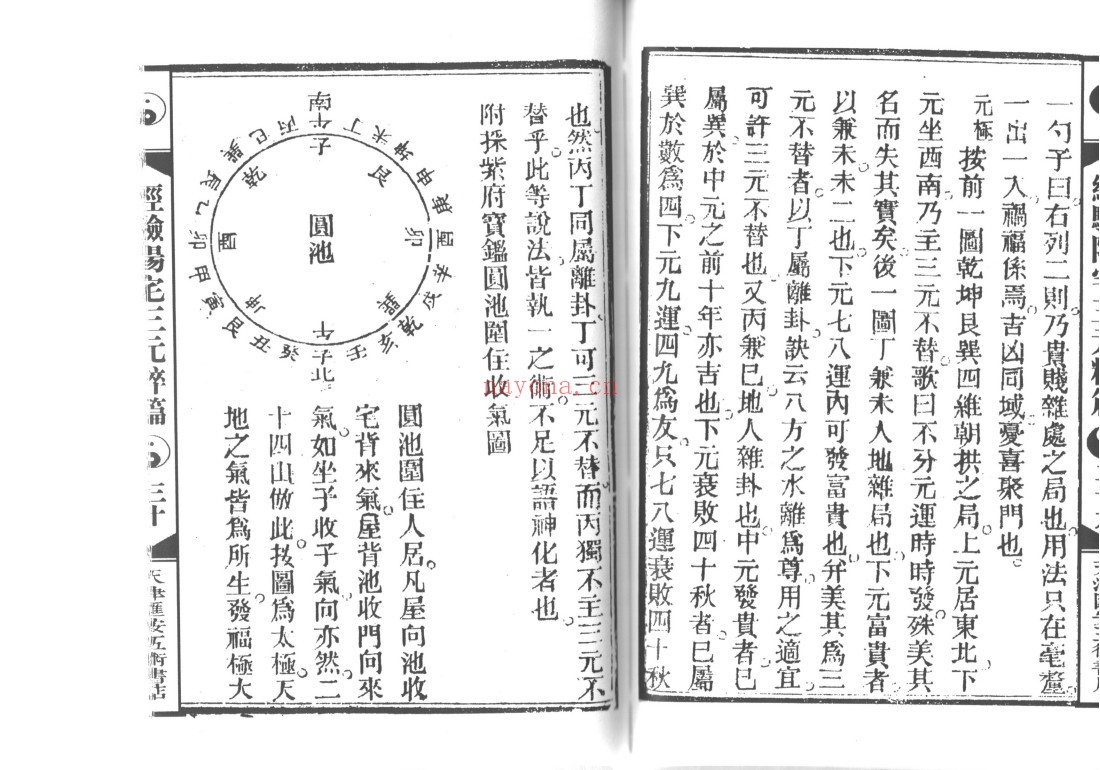 一勺子曰右列二則乃貴賤雜處之局也用法只在毫釐
一出一入禍福係焉吉凶同域憂喜聚門也
元極 按前一圖乾坤艮巽四維朝拱之局上元居東北下
元坐西南乃主三元不替歌曰不分元運時時發殊美其
名而失其實矣後一圖丁兼未人地雜局也下元富貴者
以兼未未二也下元七八運內可發富貴也弁美其爲三
元不替者以丁屬離卦訣云八方之水離爲尊用之適宜
可許三元不替也又丙兼巳地人雜卦也中元發貴者巳
屬巽於中元之前十年亦吉也下元衰敗四十秋者巳屬
巽於數爲四下元九運四九爲友只七八運衰敗四十秋
也然丙丁同屬離卦丁可三元不替而丙獨不主三元不
替乎此等說法皆執一之術不足以語神化者也
附採紫府寶鑑圓池圍住收氣圖
南
巽巳丙午丁未坤申庚酉辛戌乾亥壬子癸丑艮寅甲卯乙辰
北
子
艮
卯
午
酉
乾
圓池
圓池圍住人居凡屋向池收
宅背來氣屋背池收門向來
氣如坐子收子氣向亦然二
十四山倣此按圖爲太極天
地之氣皆爲所生發福極大
經驗陽宅三元粹篇
三十
nayona.cn